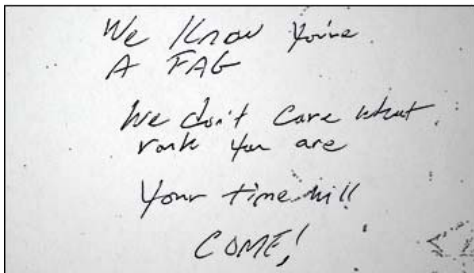 We Know You're
A FAG
We don't Care what
rank you are
Your time will
COME!